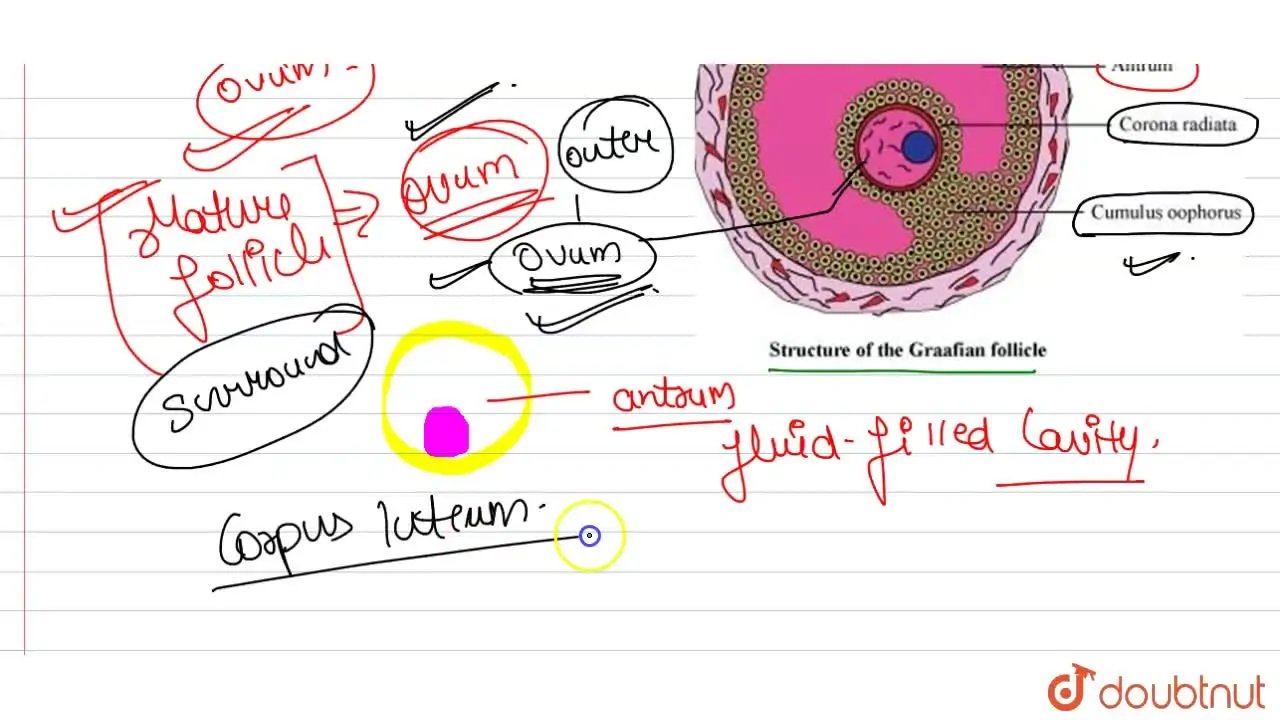 ovum.
Antrum
Corona radiata
outer
ovum
Mature
follicle
Cumulus oophorus
ovum
Surround
Structure of the Graafian follicle
antrum
fluid-filled Cavity.
Corpus luteum.
doubtnut